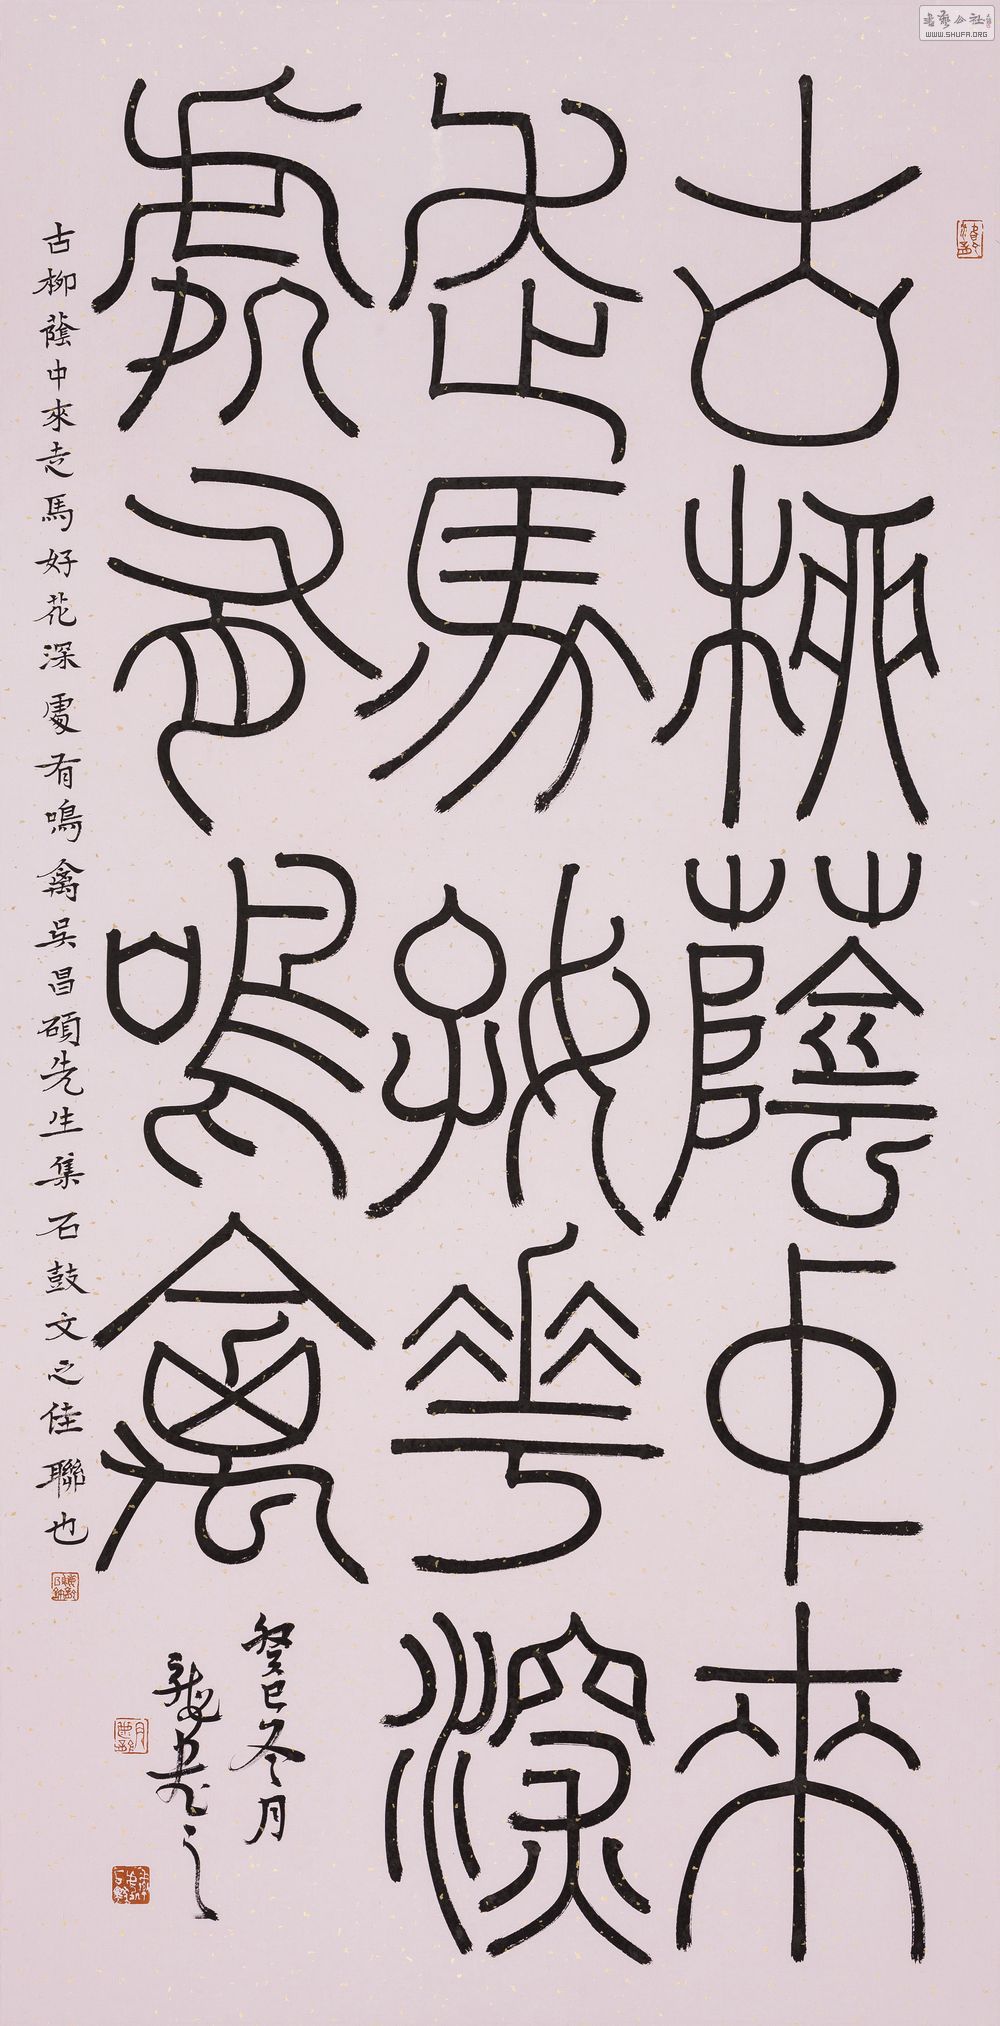 古柳蔭中來
走馬好華深
處有鳴禽
古柳蔭中來走馬好花深處有鳴禽吳昌碩先生集石鼓文之佳聯也
癸巳冬月
書之
書藝公社
WWW.SHUFA.ORG